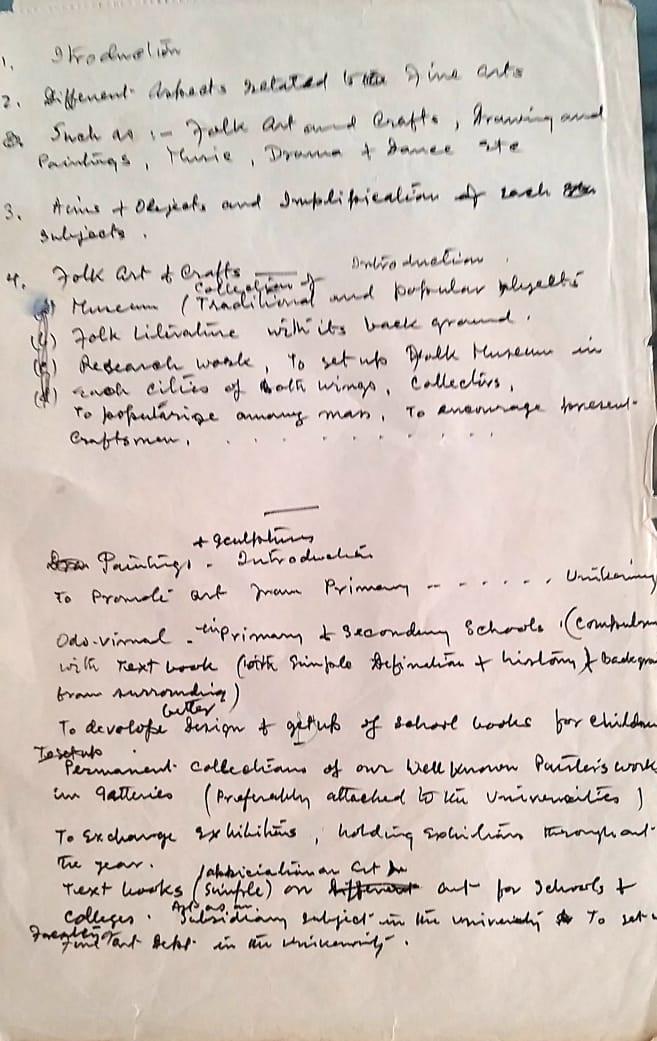 1. Itroduction
2. Different Aspects related to the Fine arts
Such as :- Folk Art and Crafts, Drawing and
Paintings, Music, Drama + Dance etc
3. Aims + Objects and Implification of each
subjects.
4. Folk Art & Crafts Introduction.
Collection of
Museum (Traditional and popular objects
Folk Literature with its back ground.
Research work, To set up Folk Museum in
each cities of both wings, Collectors,
To popularize among mass, To encourage present
Craftsmen, . . . . . . . . .
+ Sculptures
Paintings - Introduction
To Promote art from Primary - - . . . . .
in Primary & Secondary Schools,
with Text book (with Simple definition + history &
from surrounding)
better
To develope Design & getup of school books for children
To setup
Permanent Collections of our Well known Painter's work
in galleries (Preferably attached to the Universities)
To Exchange exhibitions, holding Exhibitions throughout
the year.
Text books (Simple) on art for Schools &
Colleges. Subsidiary Subject in the university To set
Faculty
Fine art Dept. in the University.